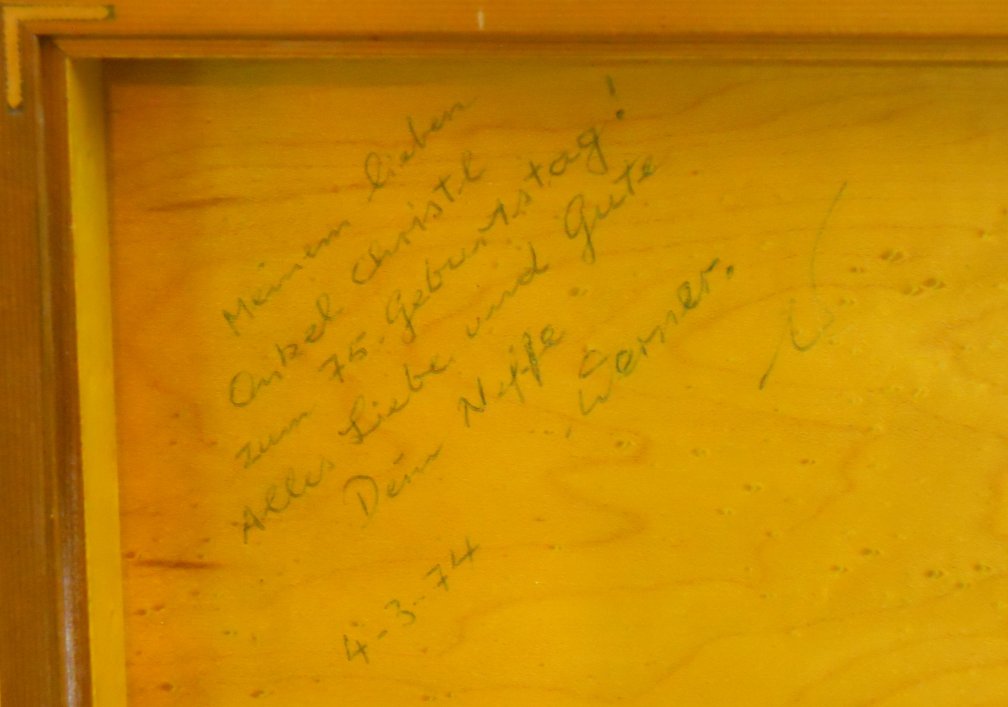 Meinem lieben
Onkel Christl
zum 75. Geburtstag!
Alles Liebe und Gute
Dein Neffe
Werner.
4-3-74